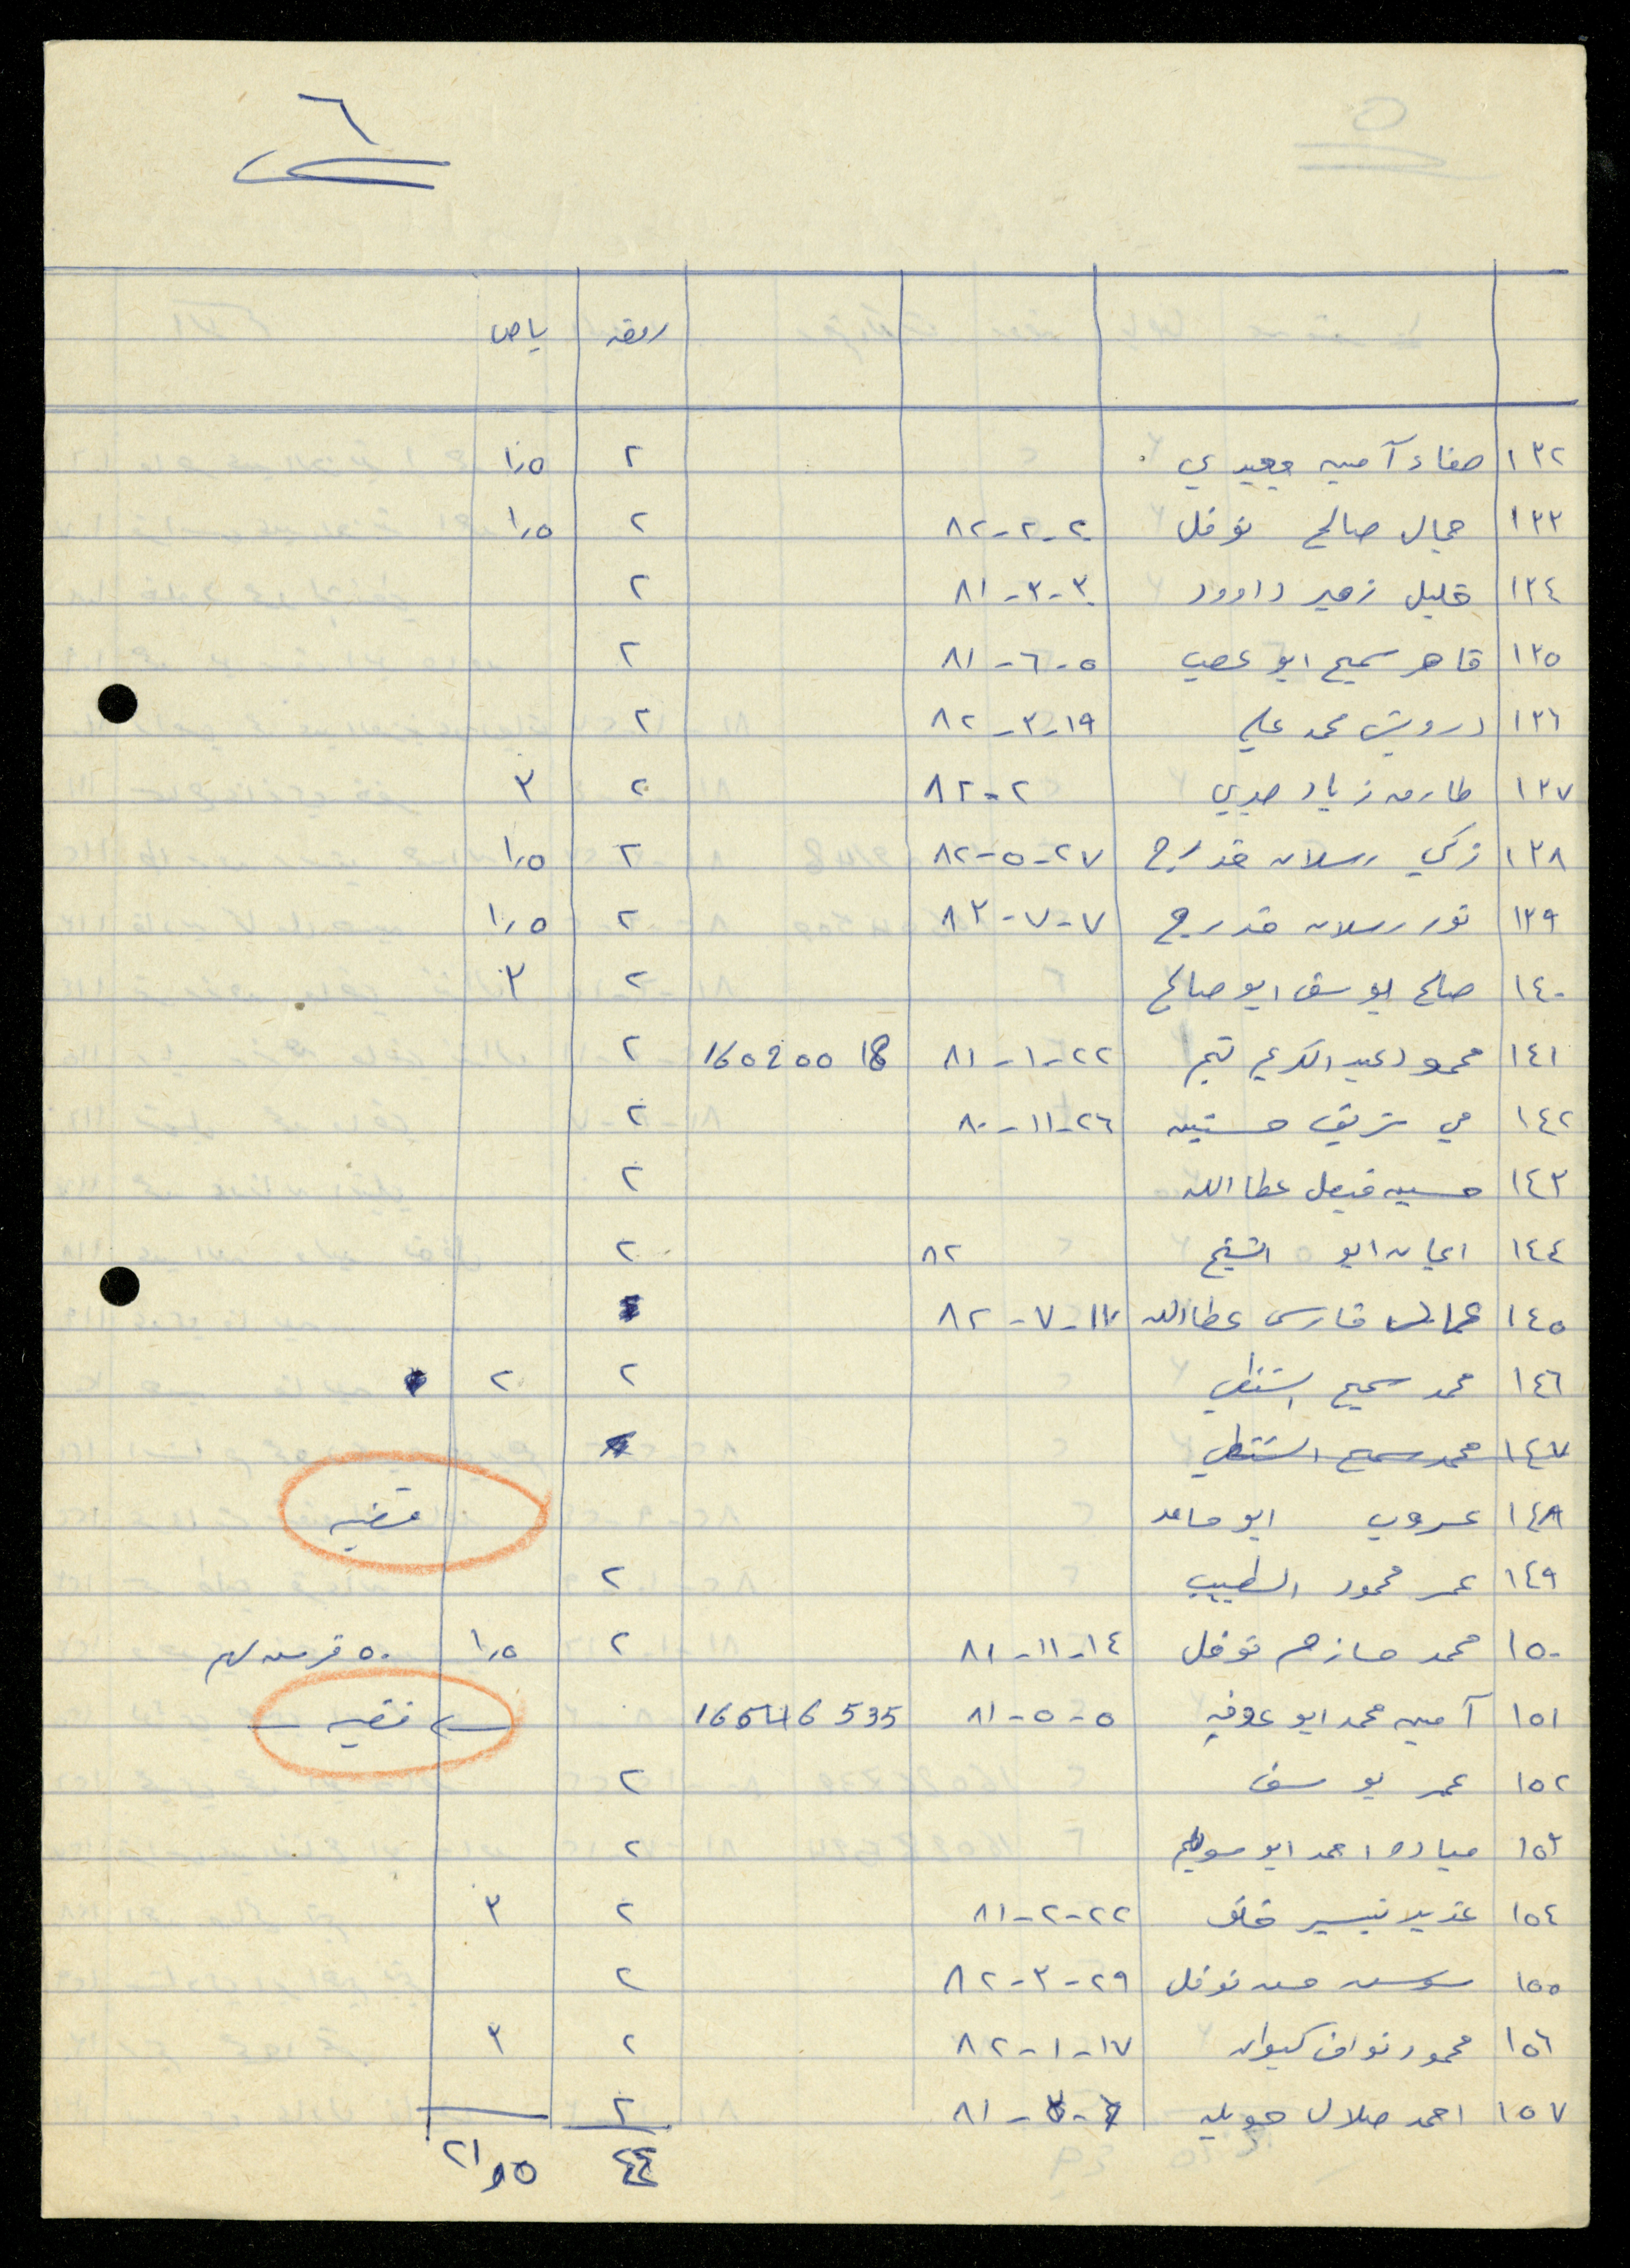 ٦
روضه باص
١٣٢ صفاء آمين جعيدي ٢ ١٫٥
١٣٣ جمال صالح نوفل ٢-٢-٨٢ ٢ ١٫٥
١٣٤ خليل زهير داوود ٣-٣-٨١ ٢
١٣٥ قاهر سميح ابو عصب ٥-٦-٨١ ٢
١٣٦ درويش محمد علي ١٩-٣-٨٢ ٢
١٣٧ طارق زياد صبري ٢-٨٢ ٢ ٣
١٣٨ زكي رسلان قدورح ٢٧-٥-٨٢ ٢ ١٫٥
١٣٩ نور رسلان قدورح ٧-٧-٨٣ ٢ ١٫٥
١٤٠ صالح يوسف ابو صالح ٢ ٣
١٤١ محمود عبد الكريم تيم ٢٢-١-٨١ 160200 18 ٢
١٤٢ مي شريف حسنين ٢٦-١١-٨٠ ٢
١٤٣ حسين فيصل عطا الله ٢
١٤٤ ايمان ابو الشيخ ٨٢ ٢
١٤٥ فارس عطا الله ١٧-٧-٨٢
١٤٦ محمد سميح الشنطي ٢ ٢
١٤٧ محمد سميح الشنطي
١٤٨ عروب ابو حامد
١٤٩ عمر محمود الطيب ٢
١٥٠ محمد حازم نوفل ١٤-١١-٨١ ٢ ١٫٥ ٥٠ قرش لهم
١٥١ آمين محمد ابو عوفه ٥-٥-٨١ 16546 535
١٥٢ عمر يوسف ٢
١٥٣ مياده احمد ابو سويلم ٢
١٥٤ تيسير خلف ٢٢-٢-٨١ ٢ ٣
١٥٥ سوسن حسن نوفل ٢٩-٣-٨٢ ٢
١٥٦ محمود نواف كيوان ١٧-١-٨٢ ٢ ٣
١٥٧ احمد ٨١ ٢
٤٤ ٢١٫٥